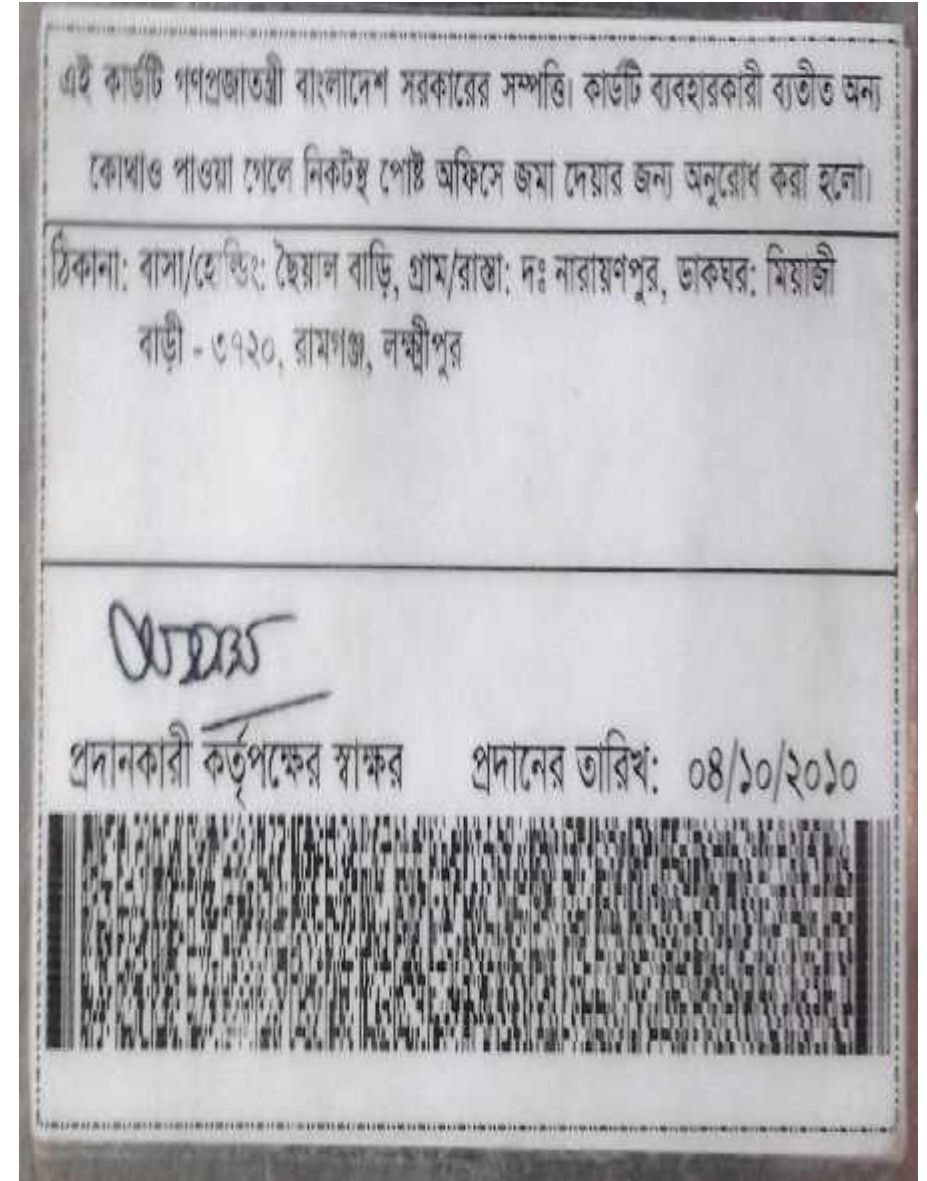 এই কার্ডটি গণপ্রজাতন্ত্রী বাংলাদেশ সরকারের সম্পত্তি। কার্ডটি ব্যবহারকারী ব্যতীত অন্য
কোথাও পাওয়া গেলে নিকটস্থ পোষ্ট অফিসে জমা দেয়ার জন্য অনুরোধ করা হলো।
ঠিকানা: বাসা/হোল্ডিং: ছৈয়াল বাড়ি, গ্রাম/রাস্তা: দঃ নারায়ণপুর, ডাকঘর: মিয়াজী
বাড়ী - ৩৭২০, রামগঞ্জ, লক্ষ্মীপুর
প্রদানকারী কর্তৃপক্ষের স্বাক্ষর প্রদানের তারিখ: ০৪/১০/২০১০